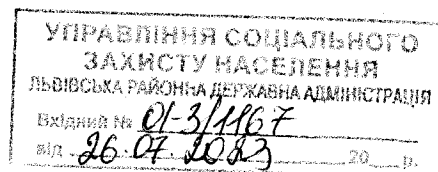 УПРАВЛІННЯ СОЦІАЛЬНОГО
ЗАХИСТУ НАСЕЛЕННЯ
ЛЬВІВСЬКА РАЙОННА ДЕРЖАВНА АДМІНІСТРАЦІЯ
Вхідний № 01-3/1167
від 26.07.2023 20__ р.